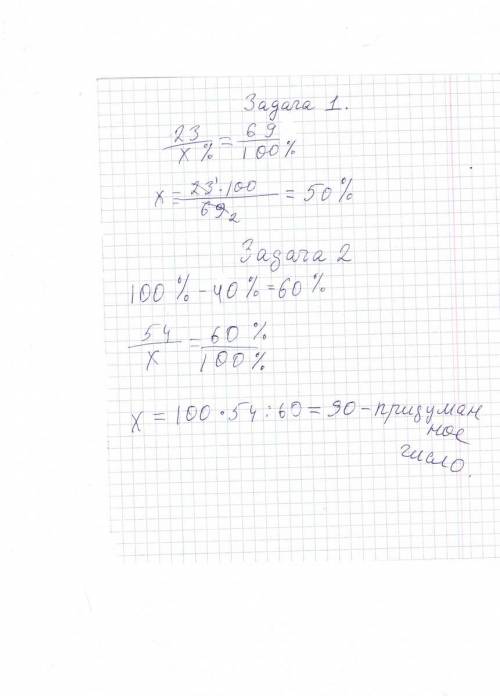 Задача 1.
23/x% = 69/100%
x = 23¹·100/69₂ = 50%
Задача 2
100% - 40% = 60%
54/x = 60%/100%
x = 100·54:60 = 90 - придуман
ное
число.